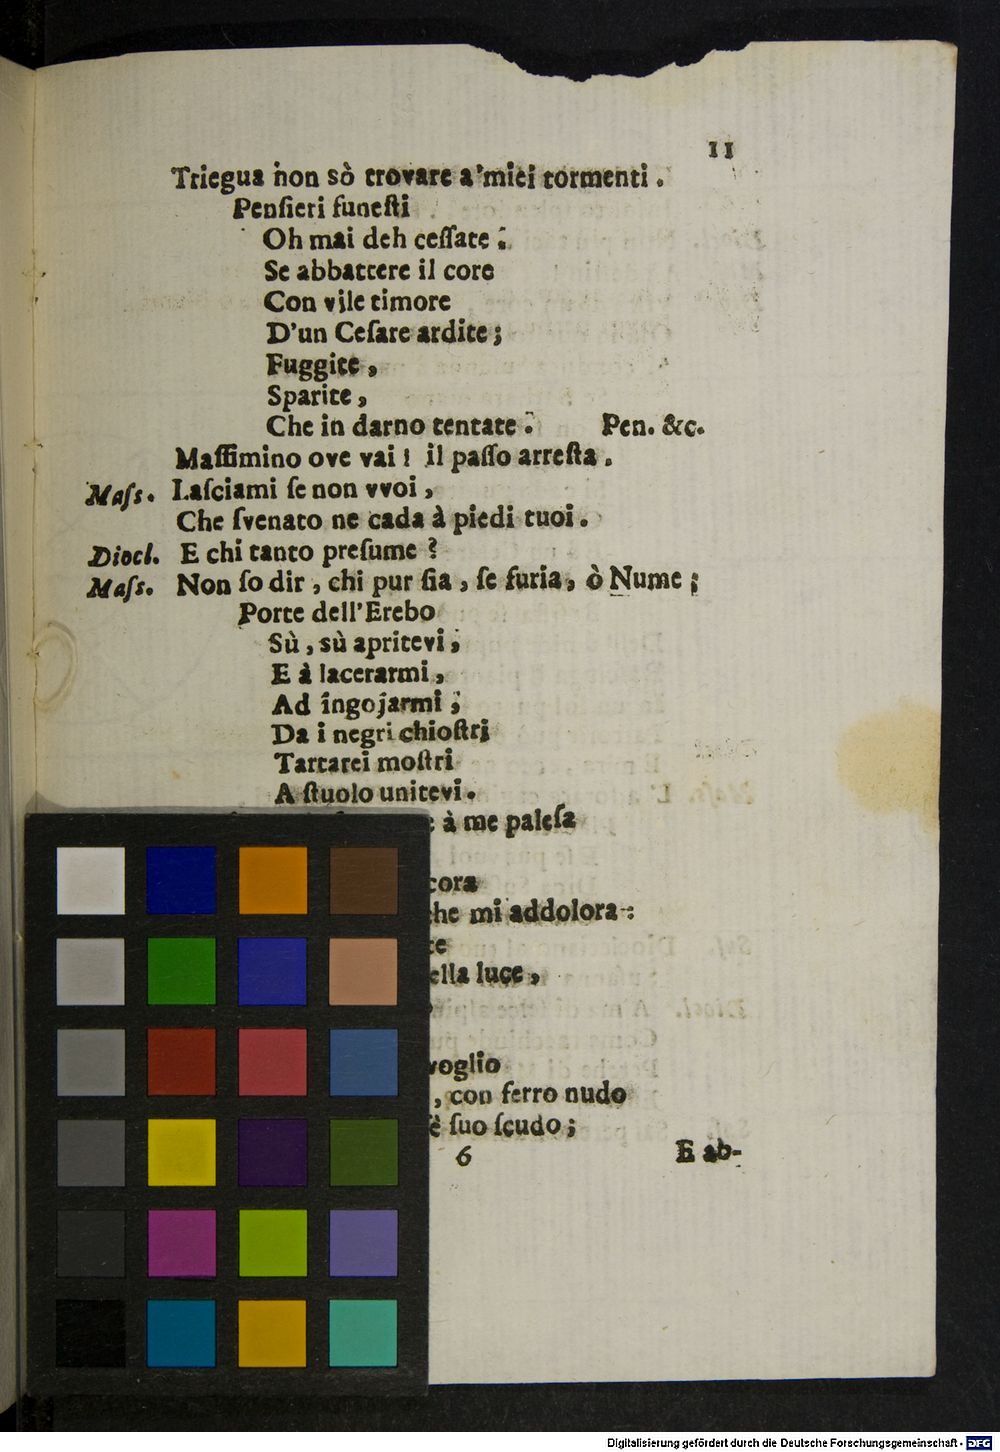 11
Triegua non sò trovare a'miei tormenti.
Penſieri funeſti
Oh mai deh ceſſate:
Se abbattere il core
Con vile timore
D'un Ceſare ardite;
Fuggite,
Sparite,
Che in darno tentate. Pen. &c.
Maſſimino ove vai! il paſſo arreſta.
Maſs. Laſciami ſe non vvoi,
Che ſvenato ne cada à piedi tuoi.
Diocl. E chi tanto preſume?
Maſs. Non ſo dir, chi pur ſia, ſe furia, ò Nume;
Porte dell'Erebo
Sù, sù apritevi,
E à lacerarmi,
Ad ingojarmi;
Da i negri chioſtri
Tartarei moſtri
A ſtuolo unitevi.
à me paleſa
cora
he mi addolora:
te
ella luce,
voglio
, con ferro nudo
è ſuo ſcudo;
6 E ab-
Digitalisierung gefördert durch die Deutsche Forschungsgemeinschaft - DFG